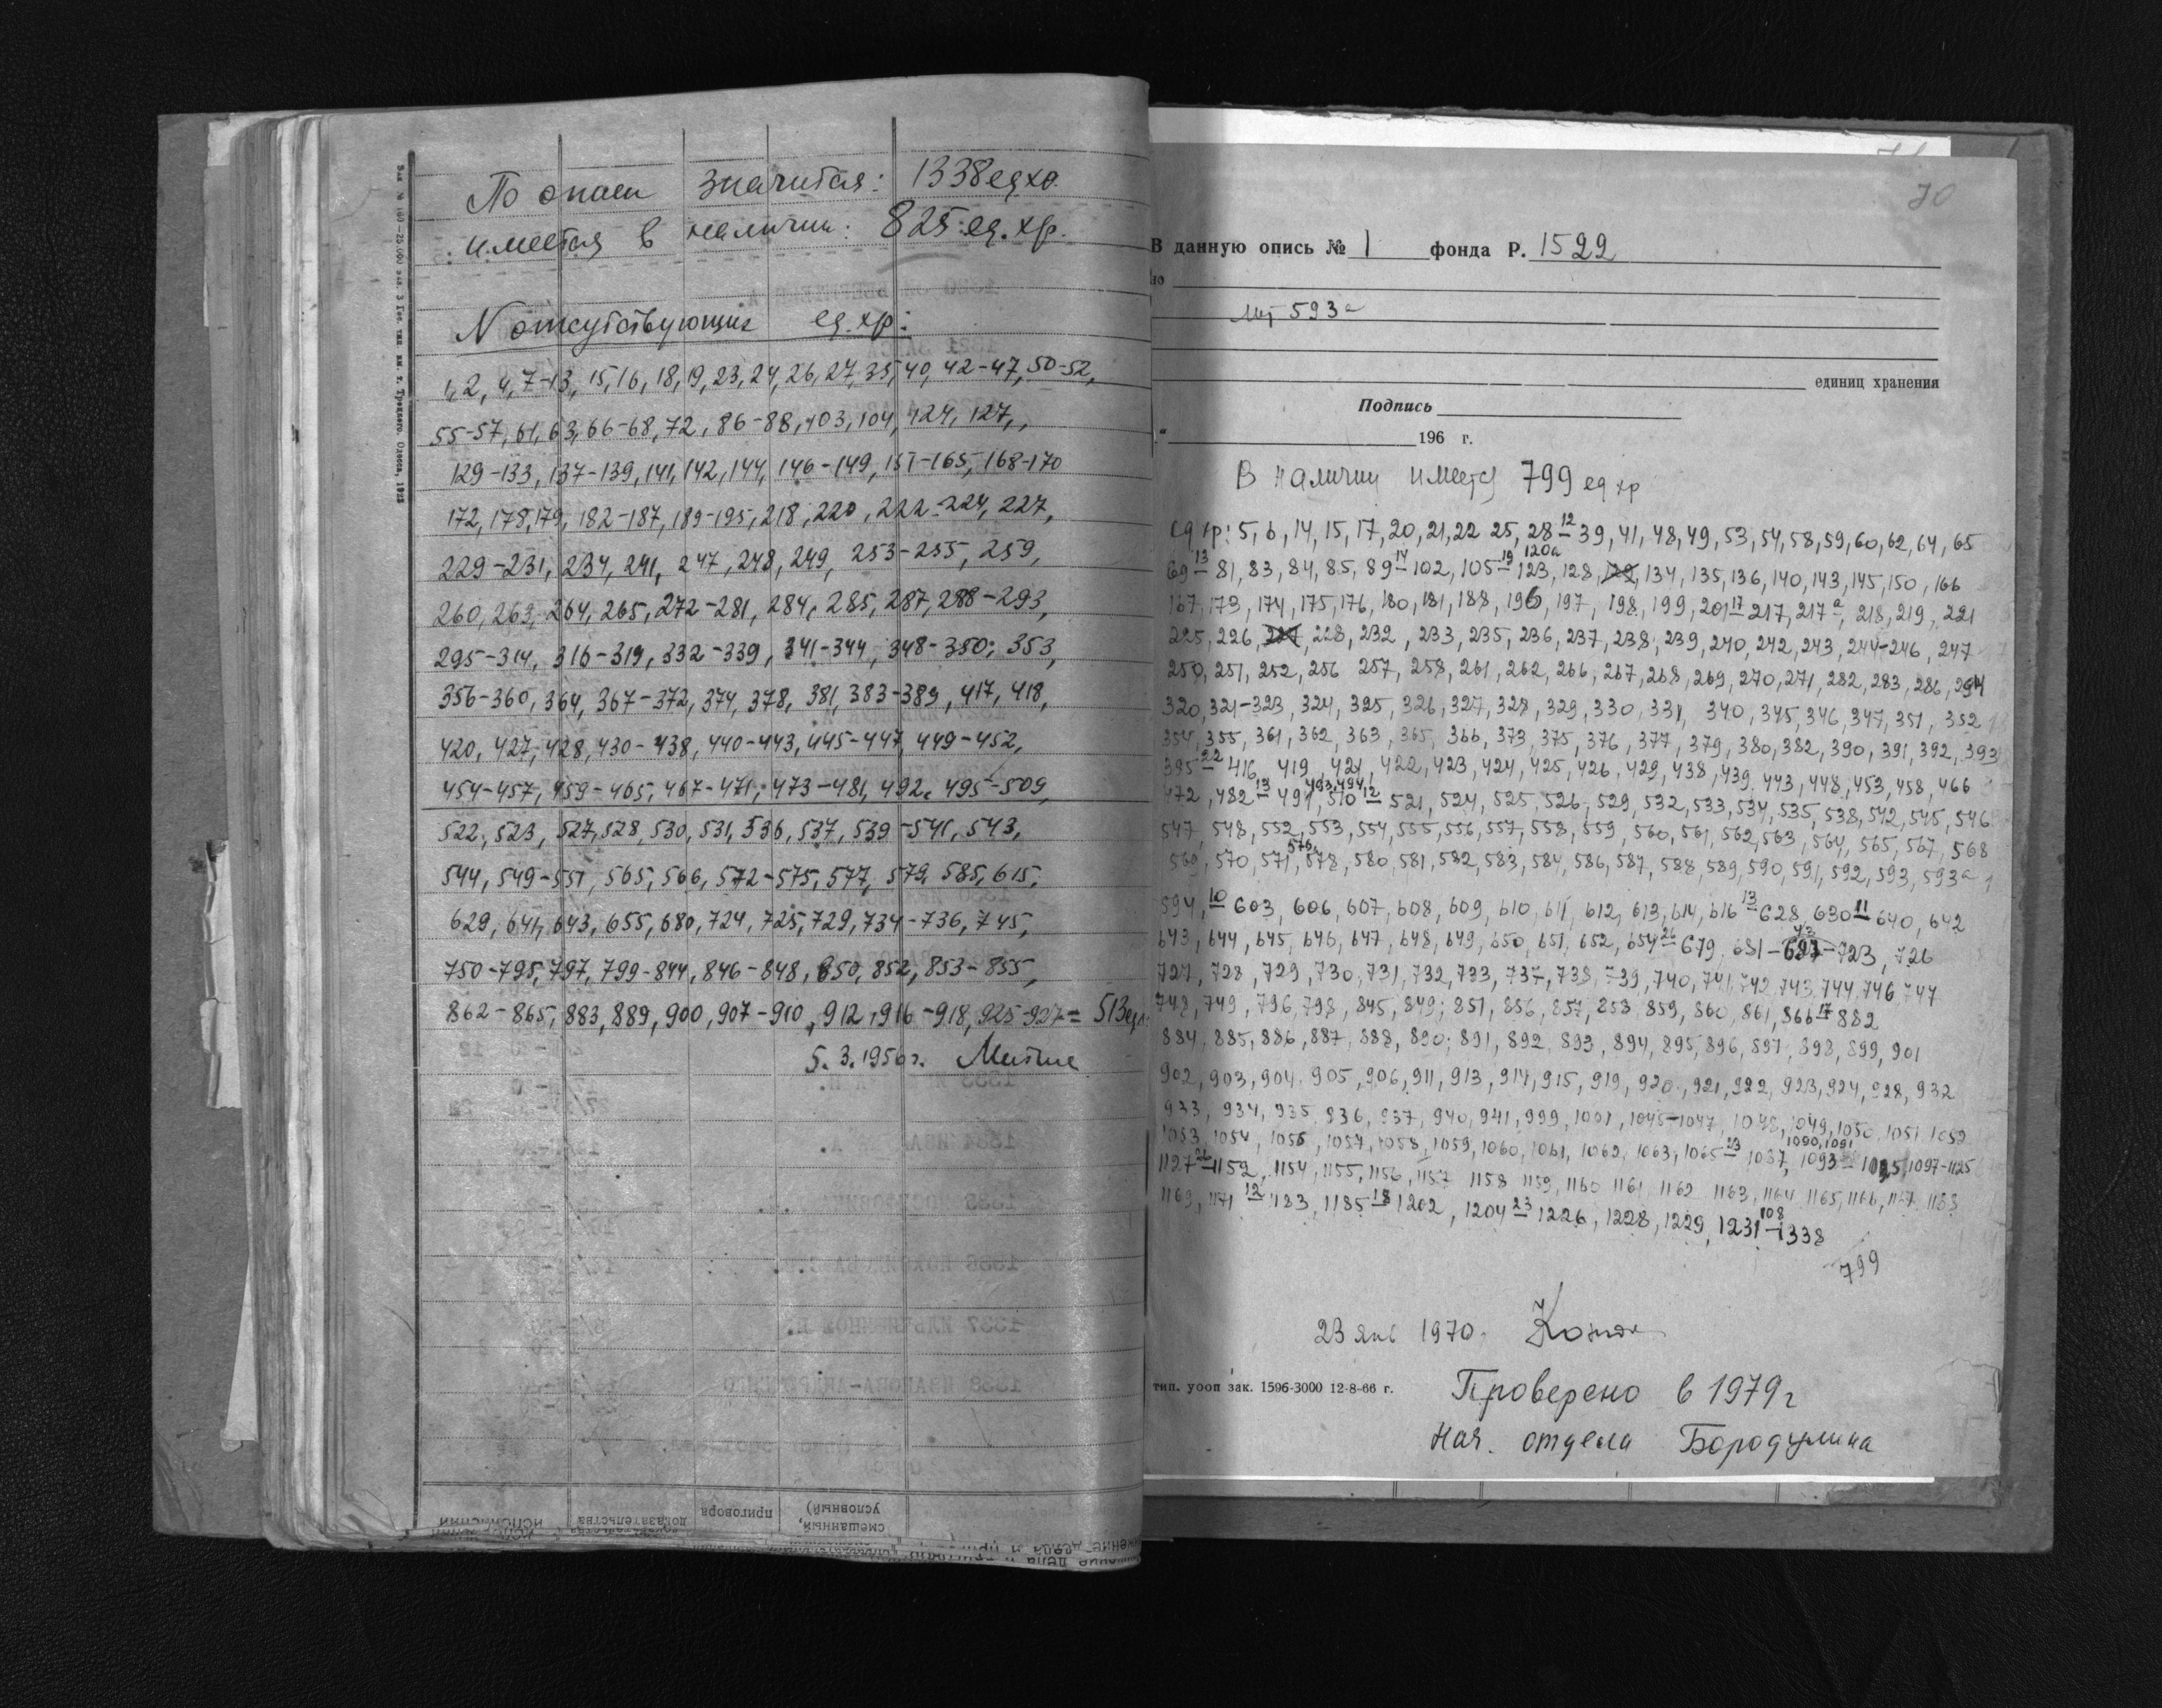 По описи значится: 1338 ед. хр.
имеется в наличии: 825 ед. хр.
N отсутствующих ед. хр.:
1, 2, 4, 7-13, 15, 16, 18, 19, 23, 24, 26, 27, 35, 40, 42-47, 50-52,
55-57, 61, 63, 66-68, 72, 86-88, 103, 104, 124, 127,,
129-133, 137-139, 141, 142, 144, 146-149, 151-165, 168-170
172, 178, 179, 182-187, 189-195, 218, 220, 222-224, 227,
229-231, 234, 241, 247, 248, 249, 253-255, 259,
260, 263, 264, 265, 272-281, 284, 285, 287, 288-293,
295-314, 316-319, 332-339, 341-344, 348-350; 353,
356-360, 364, 367-372, 374, 378, 381, 383-389, 417, 418,
420, 427, 428, 430-438, 440-443, 445-447, 449-452,
454-457, 459-465, 467-471, 473-481, 492, 495-509,
522, 523, 527, 528, 530, 531, 536, 537, 539-541, 543,
544, 549-551, 565, 566, 572-575, 577, 579, 585, 615,
629, 641, 643, 655, 680, 724, 725, 729, 734-736, 745,
750-795, 797, 799-844, 846-848, 850, 852, 853-855,
862-865, 883, 889, 900, 907-910, 912, 916-918, 925-927 = 513 ед.
5. 3. 1950 г.
Зак. № 160—25.000 экз. 3 Гос. тип. им. т. Троцкого. Одесса, 1923
смешанный, условный)
приговора
доказательства
70
В данную опись № 1 фонда Р. 1522
но
лит 593а
единиц хранения
Подпись
196 г.
В наличии имеется 799 ед хр
ед хр: 5, 6, 14, 15, 17, 20, 21, 22 25, 28 12 – 39, 41, 48, 49, 53, 54, 58, 59, 60, 62, 64, 65
69 13 – 81, 83, 84, 85, 89 14 – 102, 105 19 – 120а 123, 128, 134, 135, 136, 140, 143, 145, 150, 166
167, 173, 174, 175, 176, 180, 181, 188, 196, 197, 198, 199, 201 17 – 217, 217а, 218, 219, 221
225, 226, 227, 228, 232, 233, 235, 236, 237, 238, 239, 240, 242, 243, 244-246, 247
250, 251, 252, 256 257, 258, 261, 262, 266, 267, 268, 269, 270, 271, 282, 283, 286, 294
320, 321-323, 324, 325, 326, 327, 328, 329, 330, 331, 340, 345, 346, 347, 351, 352
354, 355, 361, 362, 363, 365, 366, 373, 375, 376, 377, 379, 380, 382, 390, 391, 392, 393
395 22 – 416, 419, 421, 422, 423, 424, 425, 426, 429, 438, 439, 443, 448, 453, 458, 466
472, 482 13 – 491, 493, 494, 510 12 – 521, 524, 525, 526, 529, 532, 533, 534, 535, 538, 542, 545, 546
547, 548, 552, 553, 554, 555, 556, 557, 558, 559, 560, 561, 562, 563, 564, 565, 567, 568
569, 570, 571, 576, 578, 580, 581, 582, 583, 584, 586, 587, 588, 589, 590, 591, 592, 593, 593а
594, 10 – 603, 606, 607, 608, 609, 610, 611, 612, 613, 614, 616 13 – 628, 630 11 – 640, 642
643, 644, 645, 646, 647, 648, 649, 650, 651, 652, 654 26 – 679, 681 – 43 723, 726
727, 728, 729, 730, 731, 732, 733, 737, 738, 739, 740, 741, 742, 743, 744, 746, 747
748, 749, 796, 798, 845, 849; 851, 856, 857, 858, 859, 860, 861, 866 17 – 882
884, 885, 886, 887, 888, 890; 891, 892, 893, 894, 895, 896, 897, 898, 899, 901
902, 903, 904, 905, 906, 911, 913, 914, 915, 919, 920, 921, 922, 923, 924, 928, 932
933, 934, 935, 936, 937, 940, 941, 999, 1001, 1045-1047, 1048, 1049, 1050, 1051, 1052
1053, 1054, 1055, 1057, 1058, 1059, 1060, 1061, 1062, 1063, 1065 23 – 1087, 1090, 1091 1093 – 1095, 1097-1125
1127 26 – 1152, 1154, 1155, 1156, 1157 1158 1159, 1160 1161 1162 1163, 1164 1165, 1166, 1167, 1168
1169, 1171 12 – 1183, 1185 18 – 1202, 1204 23 – 1226, 1228, 1229, 1231 108 – 1338
799
23 янв 1970.
тип. уооп зак. 1596-3000 12-8-66 г.
Проверено в 1979 г
Нач. отдела Бородулина